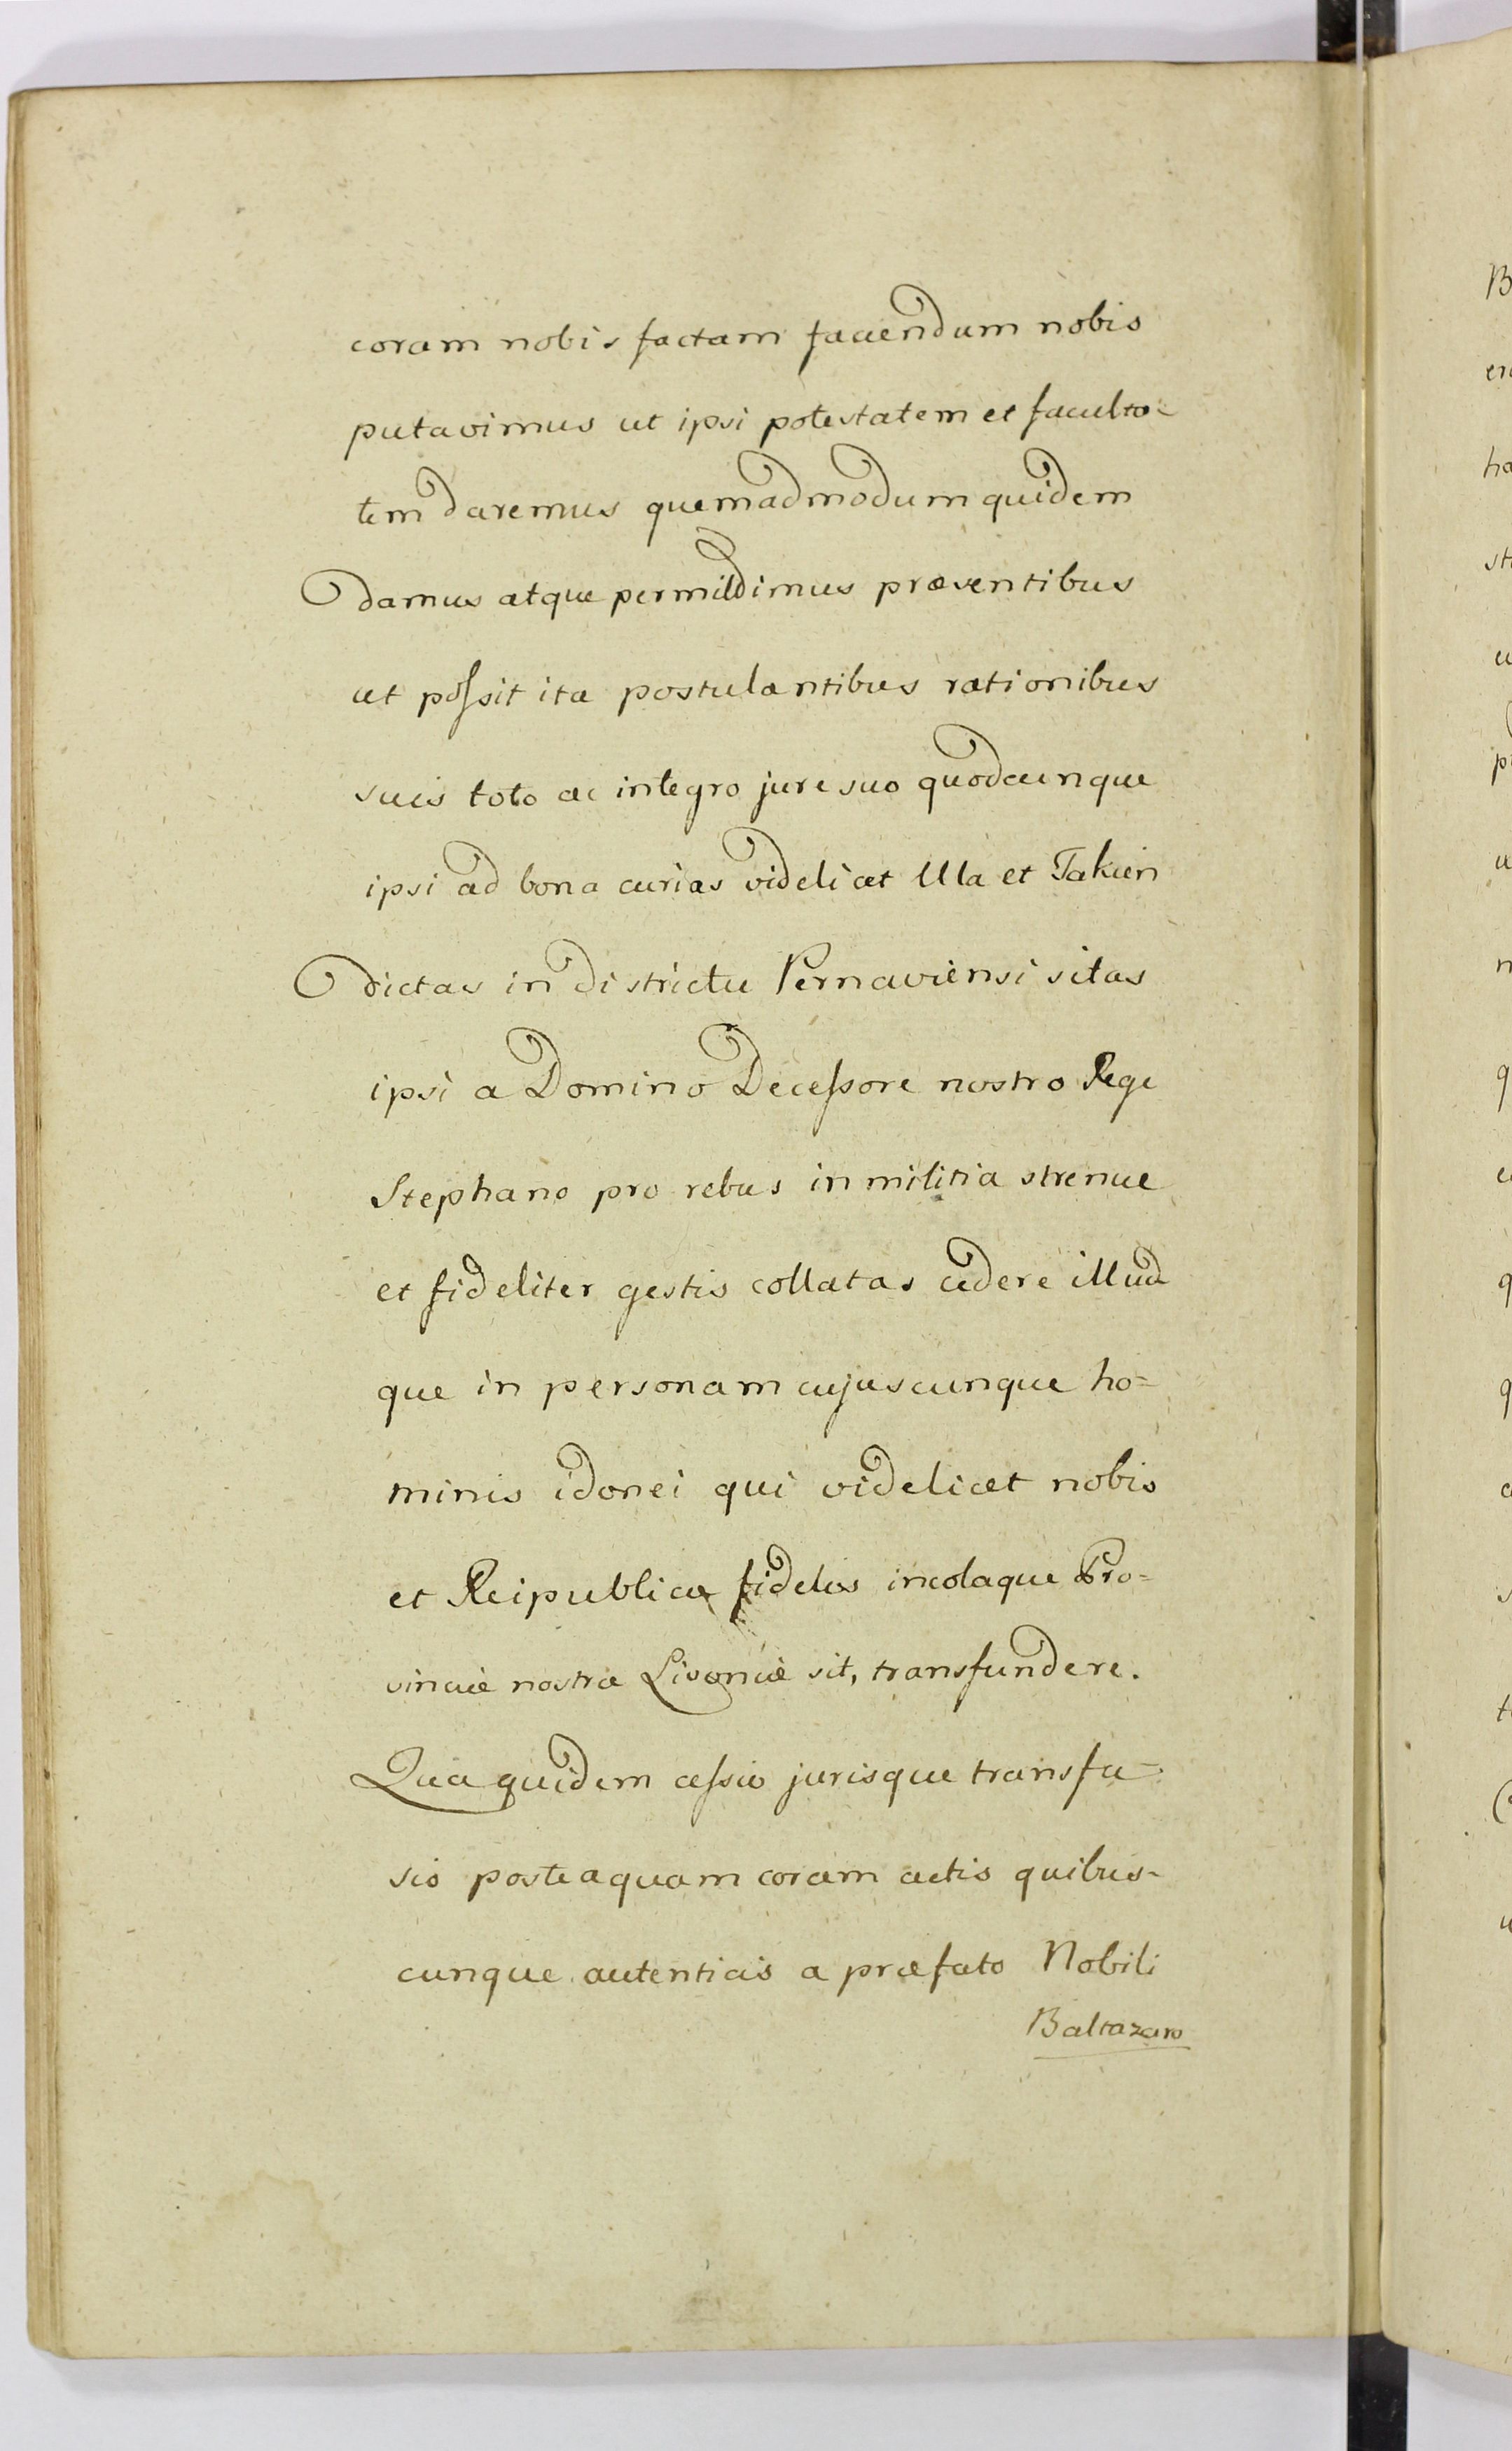 coram nobis factam faciendum nobis
putavimus ut ipsi potestatem et faculta-
tem daremus quemadmodum quidem
damus atque permittimus præsentibus
ut possit ita postulantibus rationibus
suis toto ac integro jure suo quodcunque
ipsi ad bona curias videlicet Ula et Takien
dictas in districtu Pernaviensi sitas
ipsi a Domino Decessore nostro Rege
Stephano pro rebus in militia strenue
et fideliter gestis collatas cedere illud
que in personam cujuscunque ho=
minis idonei qui videlicet nobis
et Reipublicæ fidelis incolaque Pro=
vinciæ nostræ Livoniæ sit, transfundere.
Quæ quidem cessio jurisque transfu=
sio posteaquam coram actis quibus-
cunque autenticis a præfato Nobili
Baltazaro